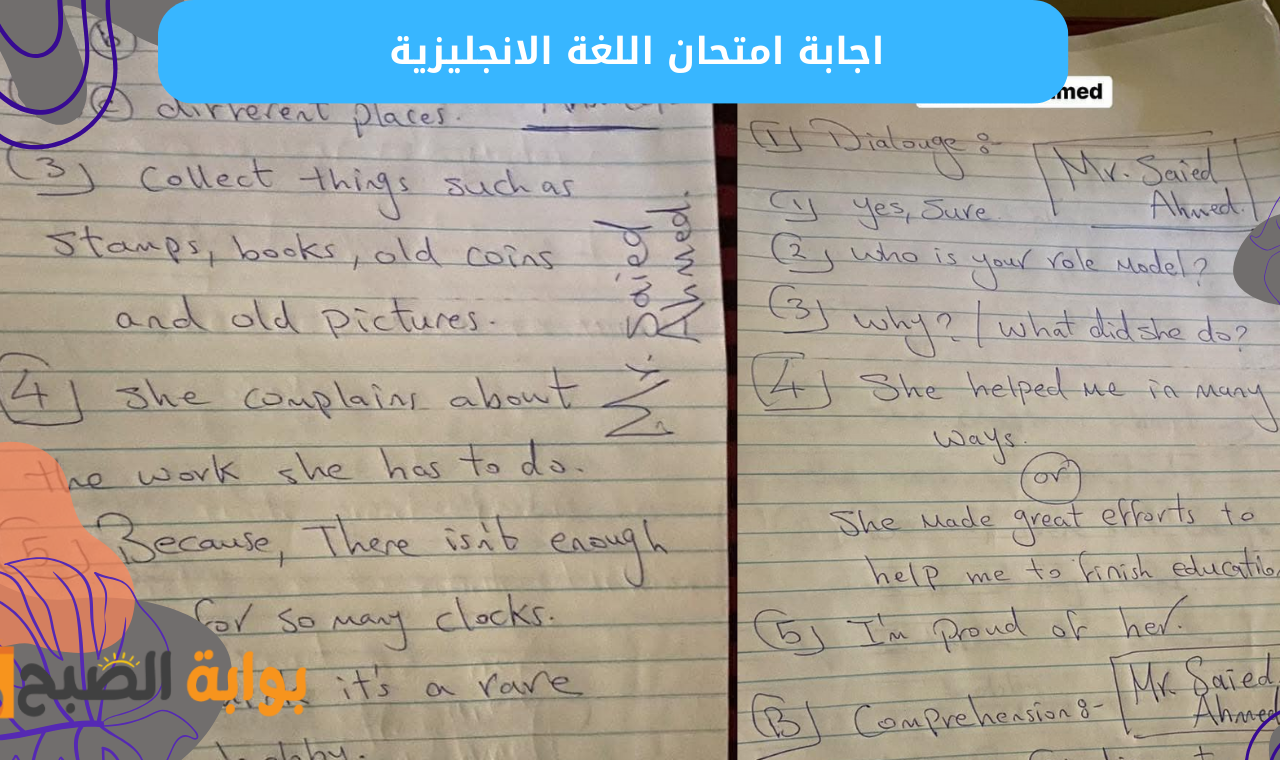 اجابة امتحان اللغة الانجليزية
med
(b)
(c) different places.
(3) Collect things such as
stamps, books, old coins
and old pictures.
(4) She complains about
the work she has to do.
(5) Because, There isn't enough
for so many clocks.
it's a rare
hobby.
Mr. Saied
Ahmed.
بوابة الصبح
(1) Dialouge :-
Mr. Saied
Ahmed.
(1) yes, Sure.
(2) who is your role Model?
(3) why? / what did she do?
(4) She helped me in many
ways.
or
She made great efforts to
help me to finish educatio
(5) I'm proud of her.
Mr. Saied
Ahme
(B) Comprehension :-